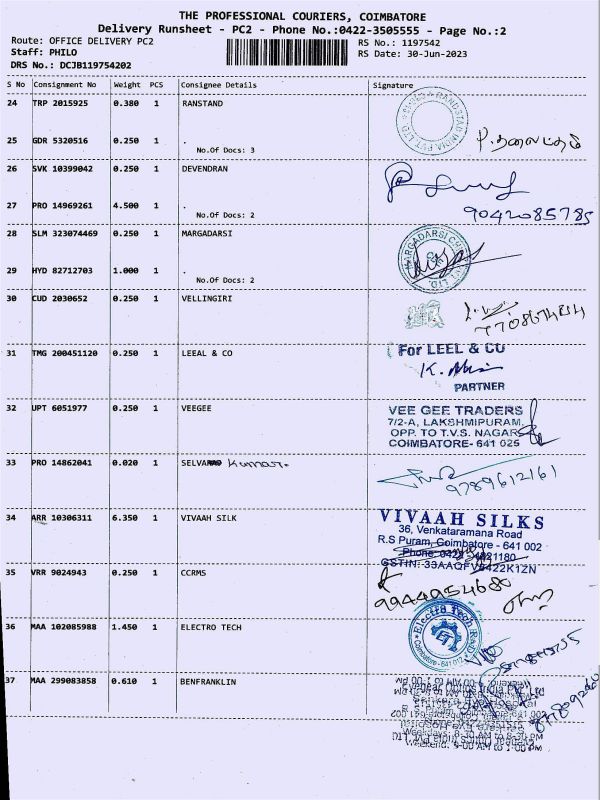 THE PROFESSIONAL COURIERS, COIMBATORE
Delivery Runsheet - PC2 - Phone No.:0422-3505555 - Page No.:2
Route: OFFICE DELIVERY PC2
RS No.: 1197542
Staff: PHILO
RS Date: 30-Jun-2023
DRS No.: DCJB119754202
S No Consignment No Weight PCS Consignee Details Signature
24 TRP 2015925 0.380 1 RANSTAND
25 GDR 5320516 0.250 1 .
No.Of Docs: 3
26 SVK 10399042 0.250 1 DEVENDRAN
27 PRO 14969261 4.500 1 .
No.Of Docs: 2
9042085785
28 SLM 323074469 0.250 1 MARGADARSI
29 HYD 82712703 1.000 1 .
No.Of Docs: 2
30 CUD 2030652 0.250 1 VELLINGIRI
31 TMG 200451120 0.250 1 LEEAL & CO
For LEEL & CO
PARTNER
32 UPT 6051977 0.250 1 VEEGEE
VEE GEE TRADERS
7/2-A, LAKSHMIPURAM,
OPP. TO T.V.S. NAGAR
COIMBATORE- 641 025
33 PRO 14862041 0.020 1 SELVA Kumar.
9789612161
34 ARR 10306311 6.350 1 VIVAAH SILK
VIVAAH SILKS
36, Venkataramana Road
R.S Puram, Coimbatore - 641 002
35 VRR 9024943 0.250 1 CCRMS
9944954680
36 MAA 102085988 1.450 1 ELECTRO TECH
Electro Tech
Coimbatore-641 012
37 MAA 299083858 0.610 1 BENFRANKLIN